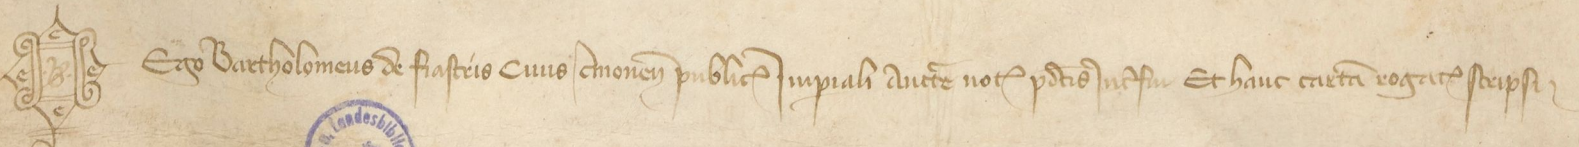 B.
Ego Bartholomeus de fiastris Ciuis cremonen publicꝰ Imperiali Aucte notꝰ pdictis Interfui Et hanc cartã rogatꝰ scripsi
Landesbiblio